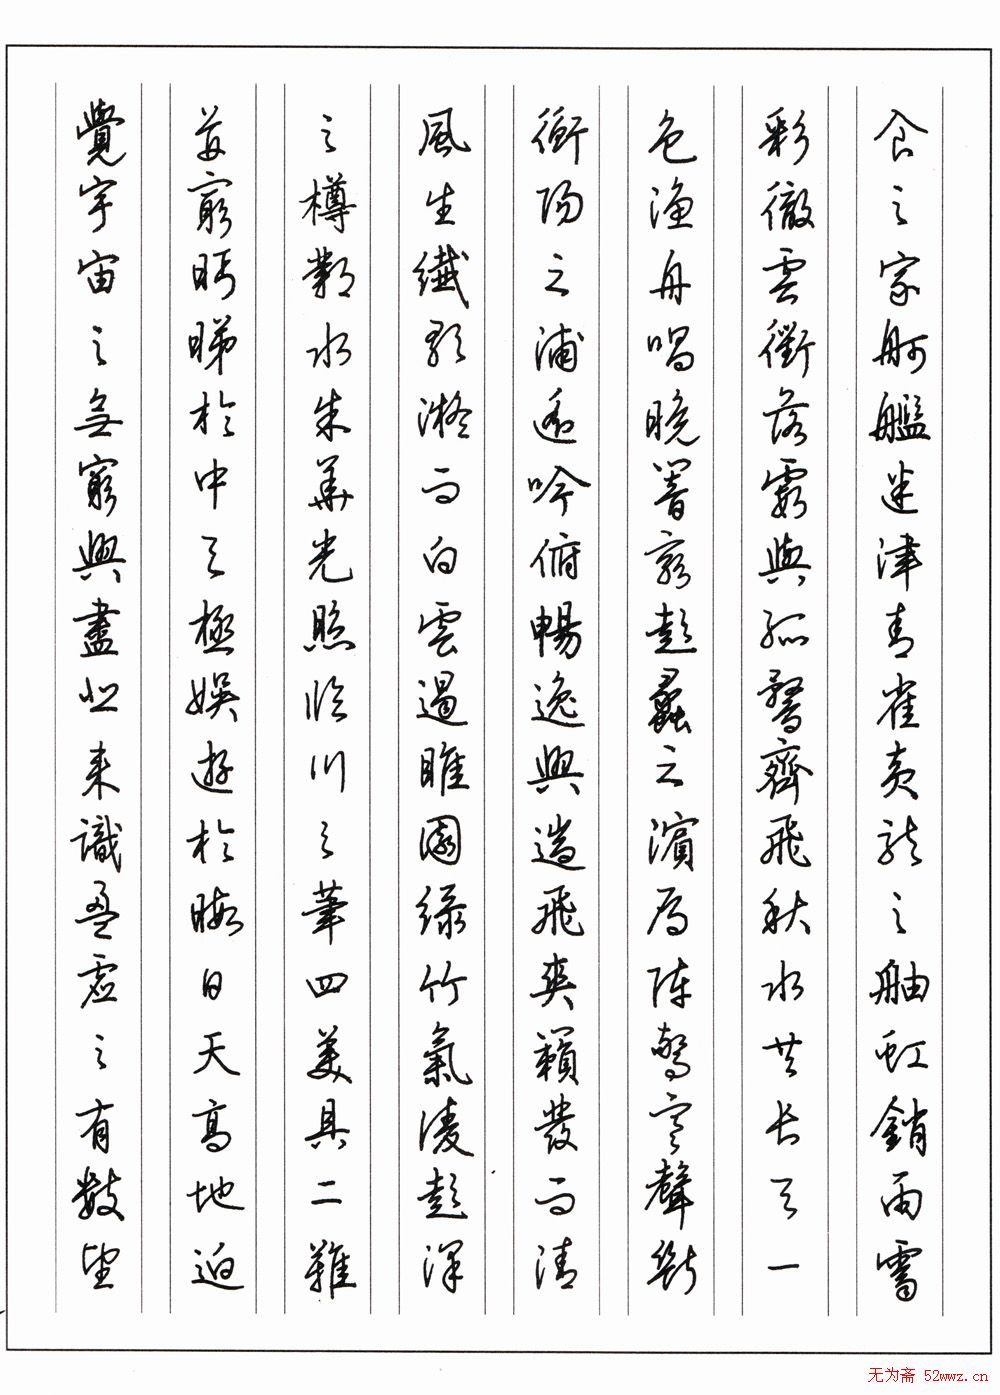 食之家舸艦迷津青雀黃龍之舳虹銷雨霽
彩徹雲衢落霞與孤鶩齊飛秋水共長天一
色漁舟唱晚響窮彭蠡之濱雁陣驚寒聲斷
衡陽之浦遙吟俯暢逸興遄飛爽籟發而清
風生纖歌凝而白雲遏睢園綠竹氣凌彭澤
之樽鄴水朱華光照臨川之筆四美具二難
並窮眄睇於中天極娛遊於暇日天高地迥
覺宇宙之無窮興盡悲來識盈虛之有數望
无为斋 52wwz.cn